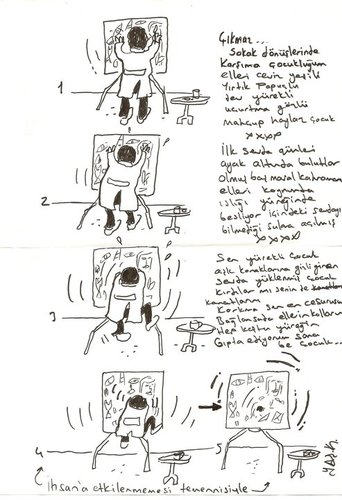 Çıkmaz...
Sokak dönüşlerinde
Karşıma çocukluğum
elleri ceviz yeşili
Yırtık Papuçlu
dev yürekli
uçurtma gönlü
Mahcup haylaz çocuk
xxxx
1
İlk sevda günleri
ayak altında bulutlar
Olmuş bay masal kahramanı
elleri koynunda
ıslığı yüreğinde
besliyor içindeki sevdayı
bilmediği sulara açılmış
xxxx
2
Sen yürekli çocuk
aşk konaklarına gizli giren
sevda yüklenmiş çocuk
Kırdılar mı senin de
kanatlarını
Korkma sen en cesurusun
Bağlansa da ellerin kolların
Her koşu yüreğin
Gıpta ediyorum sana
be çocuk...
3
4
5
İhsan'a etkilenmemesi temennisiyle...